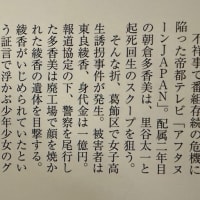 不祥事で番組存続の危機に
陥った帝都テレビ「アフタヌ
ーンJAPAN」。配属二年目
の朝倉多香美は、里谷太一と
起死回生のスクープを狙う。
そんな折、葛飾区で女子高
生誘拐事件が発生。被害者は
東良綾香、身代金は一億円。
報道協定の下、警察を尾行し
た多香美は廃工場で顔を焼か
れた綾香の遺体を目撃する。
綾香がいじめられていたとい
う証言で浮かぶ少年少女のグ